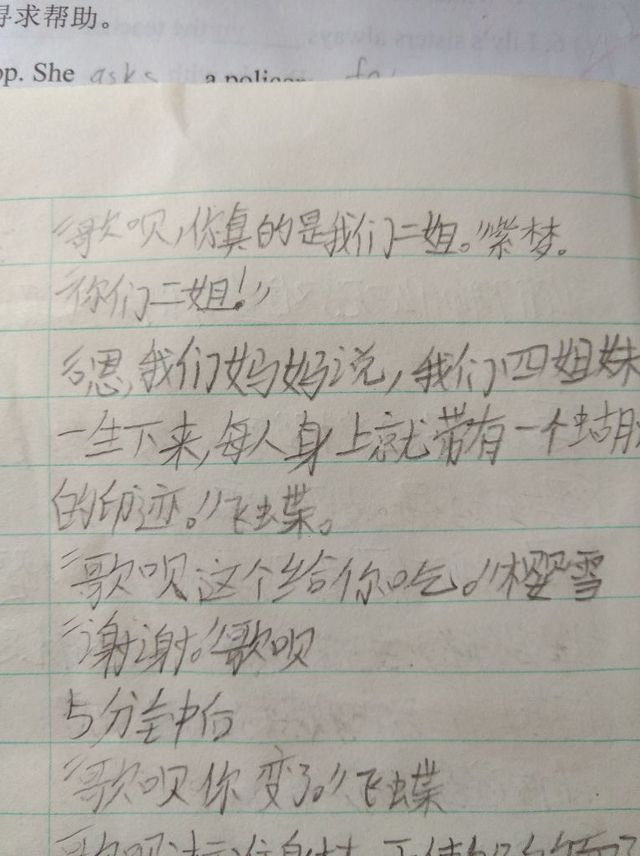 寻求帮助。
6. Lily's sisters always
op. She asks a policer
“歌呗，你真的是我们二姐。”紫梦。
“你们二姐！”
“嗯，我们妈妈说，我们四姐妹
一生下来，每人身上就带有一个蝴蝶
的印迹。”飞蝶。
“歌呗这个给你吃。”樱雪
“谢谢。”歌呗
5分钟后
“歌呗你变了。”飞蝶